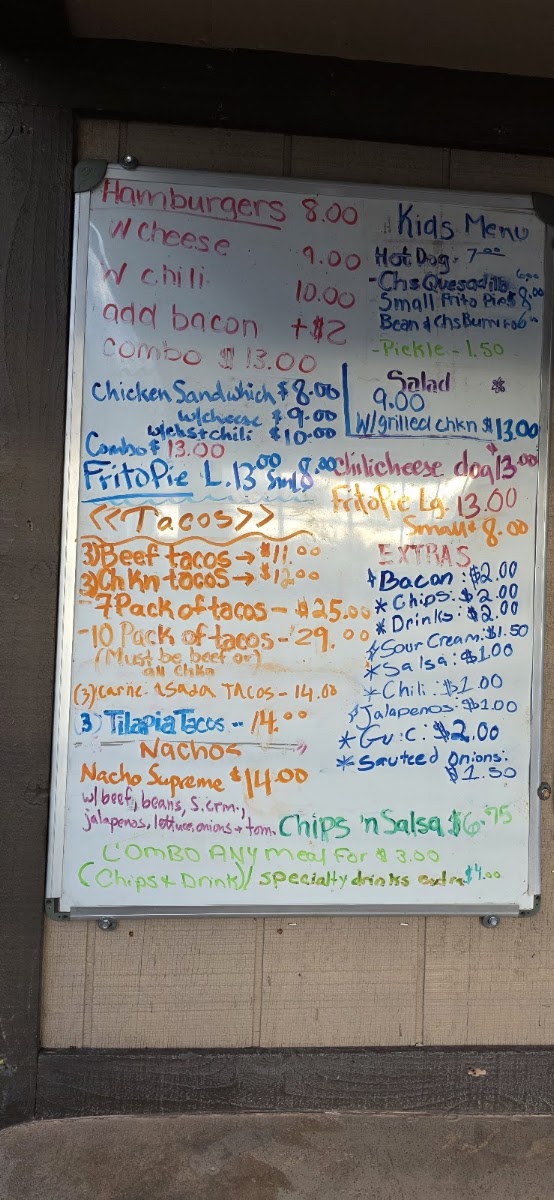 Hamburgers 8.00
w cheese 9.00
w chili 10.00
add bacon +$2
combo $13.00
Chicken Sandwhich $8.00
w/cheese $9.00
w/chs+chili $10.00
Combo $13.00
FritoPie L.13.00 Sml 8.00
<<Tacos>>
3) Beef tacos → $11.00
3) Chkn tacos → $12.00
-7 Pack of tacos - $25.00
-10 Pack of tacos - 29.00
(Must be beef or)
all Chkn
(3) Carne Asada Tacos - 14.00
(3) Tilapia Tacos - 14.00
Nachos
Nacho Supreme $14.00
w/beef, beans, S.crm.,
jalapenos, lettuce, onions + tom.
Kids Menu
Hot Dog - 7.00
-Chs Quesadilla 6.00
Small Frito Pie $8.00
Bean & Chs Burrito 6
-Pickle - 1.50
Salad *
9.00
W/grilled chkn $13.00
Chilicheese dog $13.00
FritoPie Lg. 13.00
Small $8.00
EXTRAS
*Bacon: $2.00
*Chips: $2.00
*Drinks: $2.00
*Sour Cream: $1.50
*Salsa: $1.00
*Chili: $1.00
*Jalapenos: $1.00
*Gu:c: $2.00
*Sauteed Onions:
$1.50
Chips 'n Salsa $6.75
COMBO ANY meal For $3.00
(Chips & Drink) specialty drinks extra $4.00